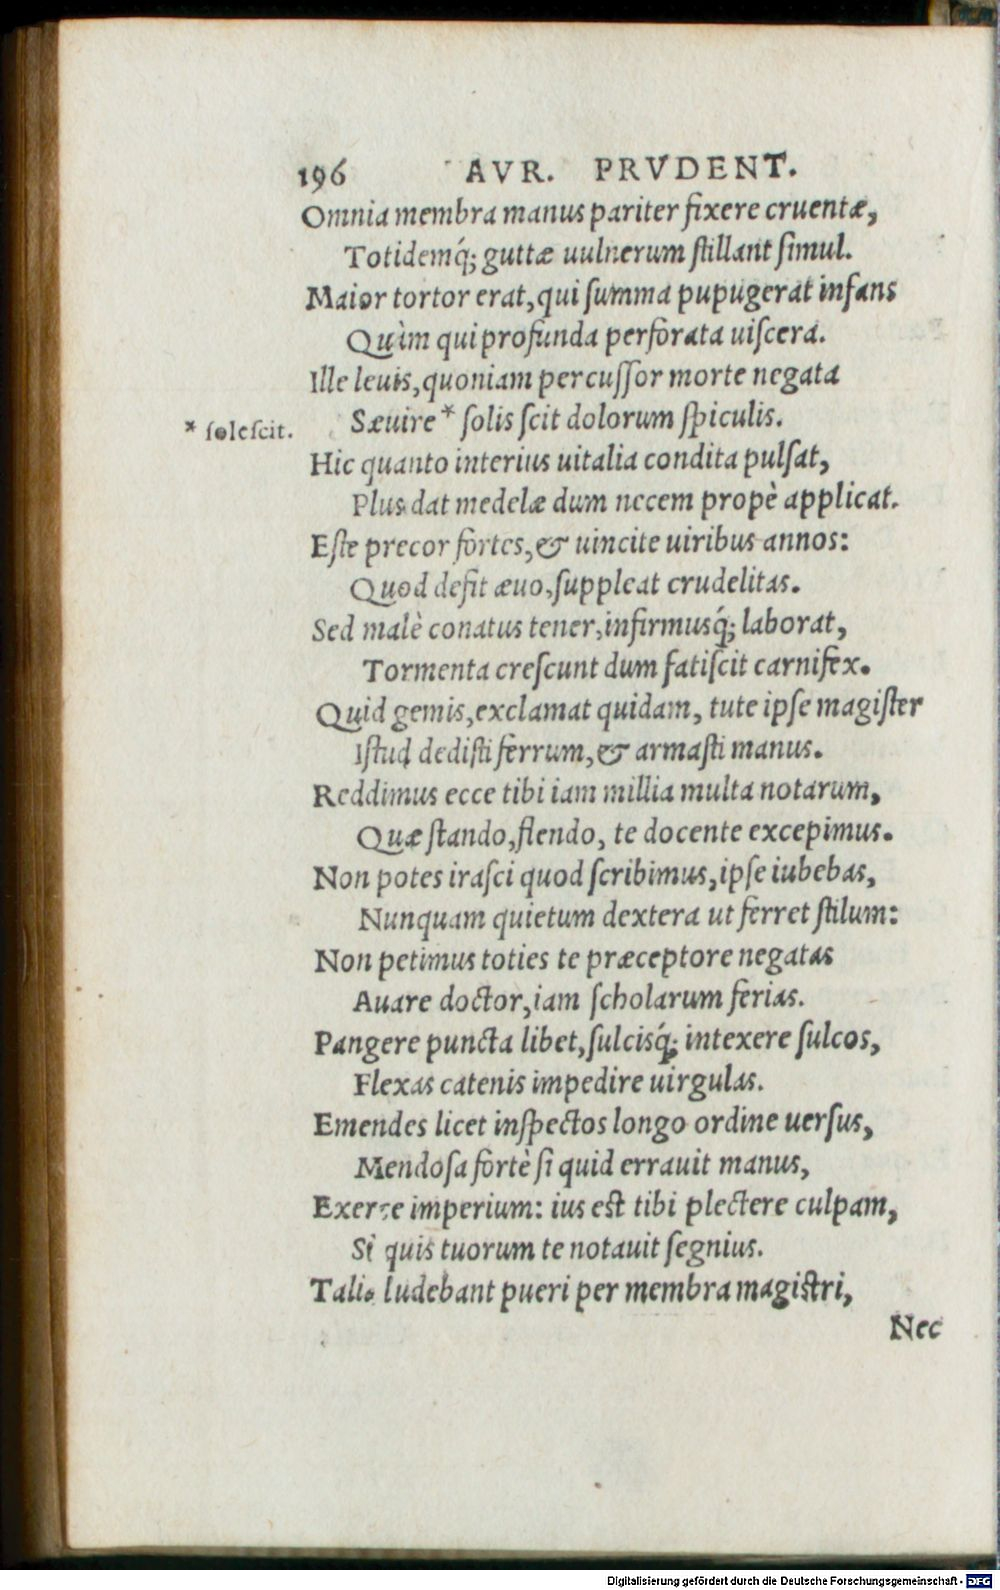 196 AVR. PRVDENT.
Omnia membra manus pariter fixere cruentæ,
Totidemq́; guttæ uulnerum ſtillant ſimul.
Maior tortor erat, qui ſumma pupugerat infans
Quàm qui profunda perforata uiſcera.
Ille leuis, quoniam percuſſor morte negata
Sæuire * ſolis ſcit dolorum ſpiculis.
* ſoleſcit.
Hic quanto interius uitalia condita pulſat,
Plus dat medelæ dum necem propè applicat.
Eſte precor fortes, & uincite uiribus annos:
Quod defit æuo, ſuppleat crudelitas.
Sed malè conatus tener, infirmusq́; laborat,
Tormenta creſcunt dum fatiſcit carnifex.
Quid gemis, exclamat quidam, tute ipſe magiſter
Iſtud dediſti ferrum, & armaſti manus.
Reddimus ecce tibi iam millia multa notarum,
Quæ ſtando, flendo, te docente excepimus.
Non potes iraſci quod ſcribimus, ipſe iubebas,
Nunquam quietum dextera ut ferret ſtilum:
Non petimus toties te præceptore negatas
Auare doctor, iam ſcholarum ferias.
Pangere puncta libet, ſulcisq́; intexere ſulcos,
Flexas catenis impedire uirgulas.
Emendes licet inſpectos longo ordine uerſus,
Mendoſa fortè ſi quid errauit manus,
Exerce imperium: ius est tibi plectere culpam,
Si quis tuorum te notauit ſegnius.
Talia ludebant pueri per membra magiſtri,
Nec
Digitalisierung gefördert durch die Deutsche Forschungsgemeinschaft - DFG